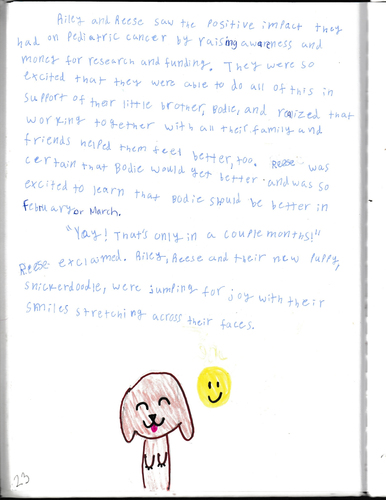 Riley and Reese saw the positive impact they
had on pediatric cancer by raising awareness and
money for research and funding. They were so
excited that they were able to do all of this in
support of their little brother, Bodie, and realized that
working together with all their family and
friends helped them feel better, too. Reese was
certain that Bodie would get better and was so
excited to learn that Bodie should be better in
February or March.
"Yay! That's only in a couple months!"
Reese exclaimed. Riley, Reese and their new puppy,
Snickerdoodle, were jumping for joy with their
smiles stretching across their faces.
23